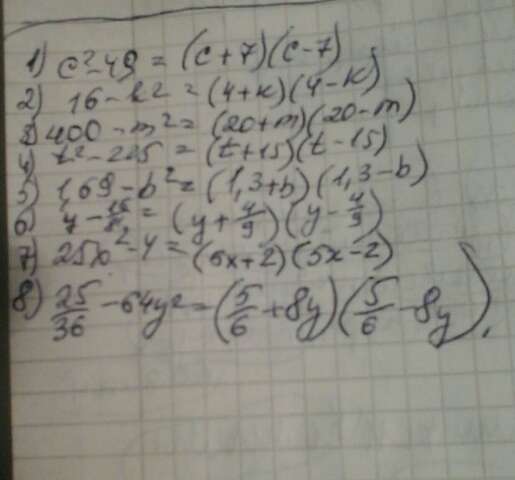 1) c²-49 = (c+7)(c-7)
2) 16-k² = (4+k)(4-k)
3) 400-m² = (20+m)(20-m)
4) t²-225 = (t+15)(t-15)
5) 1,69-b² = (1,3+b)(1,3-b)
6) y-16/81 = (y+4/9)(y-4/9)
7) 25x²-4 = (5x+2)(5x-2)
8) 25/36-64y² = (5/6+8y)(5/6-8y).